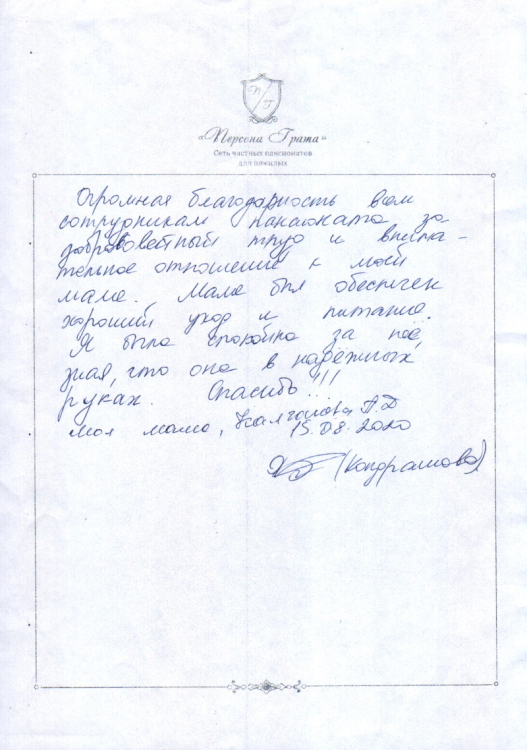 П Г
«Персона Грата»
Сеть частных пансионатов
для пожилых
Огромная благодарность всем
сотрудникам пансионата за
добросовестный труд и внима-
тельное отношение к моей
маме. Маме был обеспечен
хороший уход и питание.
Я была спокойна за неё,
зная, что она в надёжных
руках. Спасибо!!!
Моя мама, А.Д
15.08.2020
(Кондрашова)